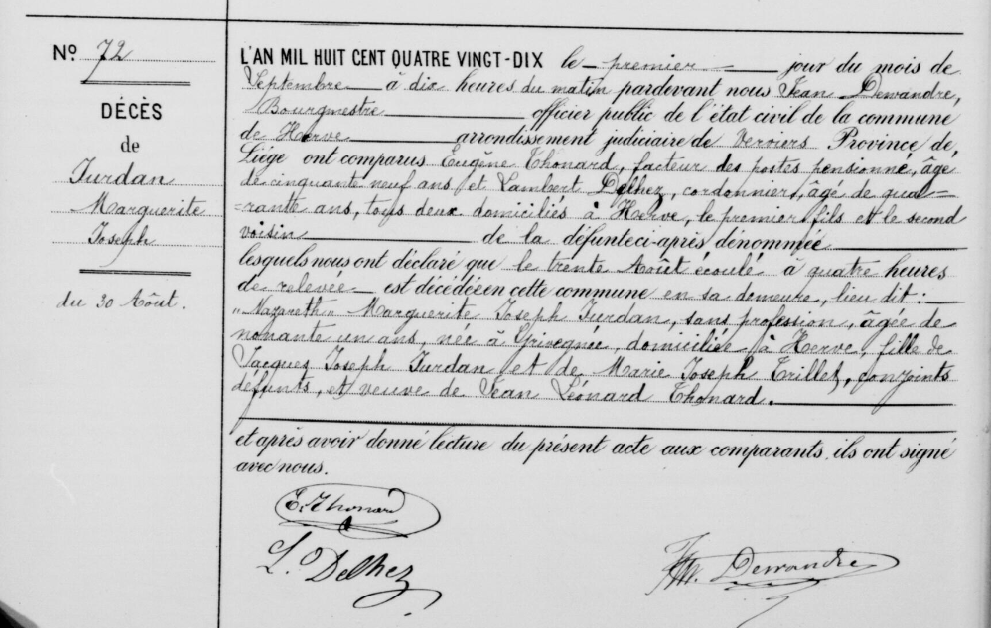 Nº 72
DÉCÈS
de
Jurdan
Marguerite
Joseph
du 30 Août.
L'AN MIL HUIT CENT QUATRE VINGT-DIX le premier jour du mois de
Septembre à dix heures du matin pardevant nous Jean Dewandre,
Bourgmestre officier public de l'état civil de la commune
de Herve arrondissement judiciaire de Verviers Province de
Liége ont comparus Eugène Thonard, facteur des postes pensionné, âgé
de cinquante neuf ans et Lambert Delhez, cordonnier, âgé de qua-
-rante ans, tous deux domiciliés à Herve, le premier fils et le second
voisin de la défunte ci-après dénommée
lesquels nous ont déclaré que le trente Août écoulé à quatre heures
de relevée est décédée en cette commune en sa demeure, lieu dit:
"Nazareth" Marguerite Joseph Jurdan, sans profession, âgée de
nonante un ans, née à Grivegnée, domiciliée à Herve, fille de
Jacques Joseph Jurdan et de Marie Joseph Trillet, conjoints
défunts, et veuve de Jean Léonard Thonard.
et après avoir donné lecture du présent acte aux comparants, ils ont signé
avec nous.
E. Thonard
L. Delhez
Dewandre